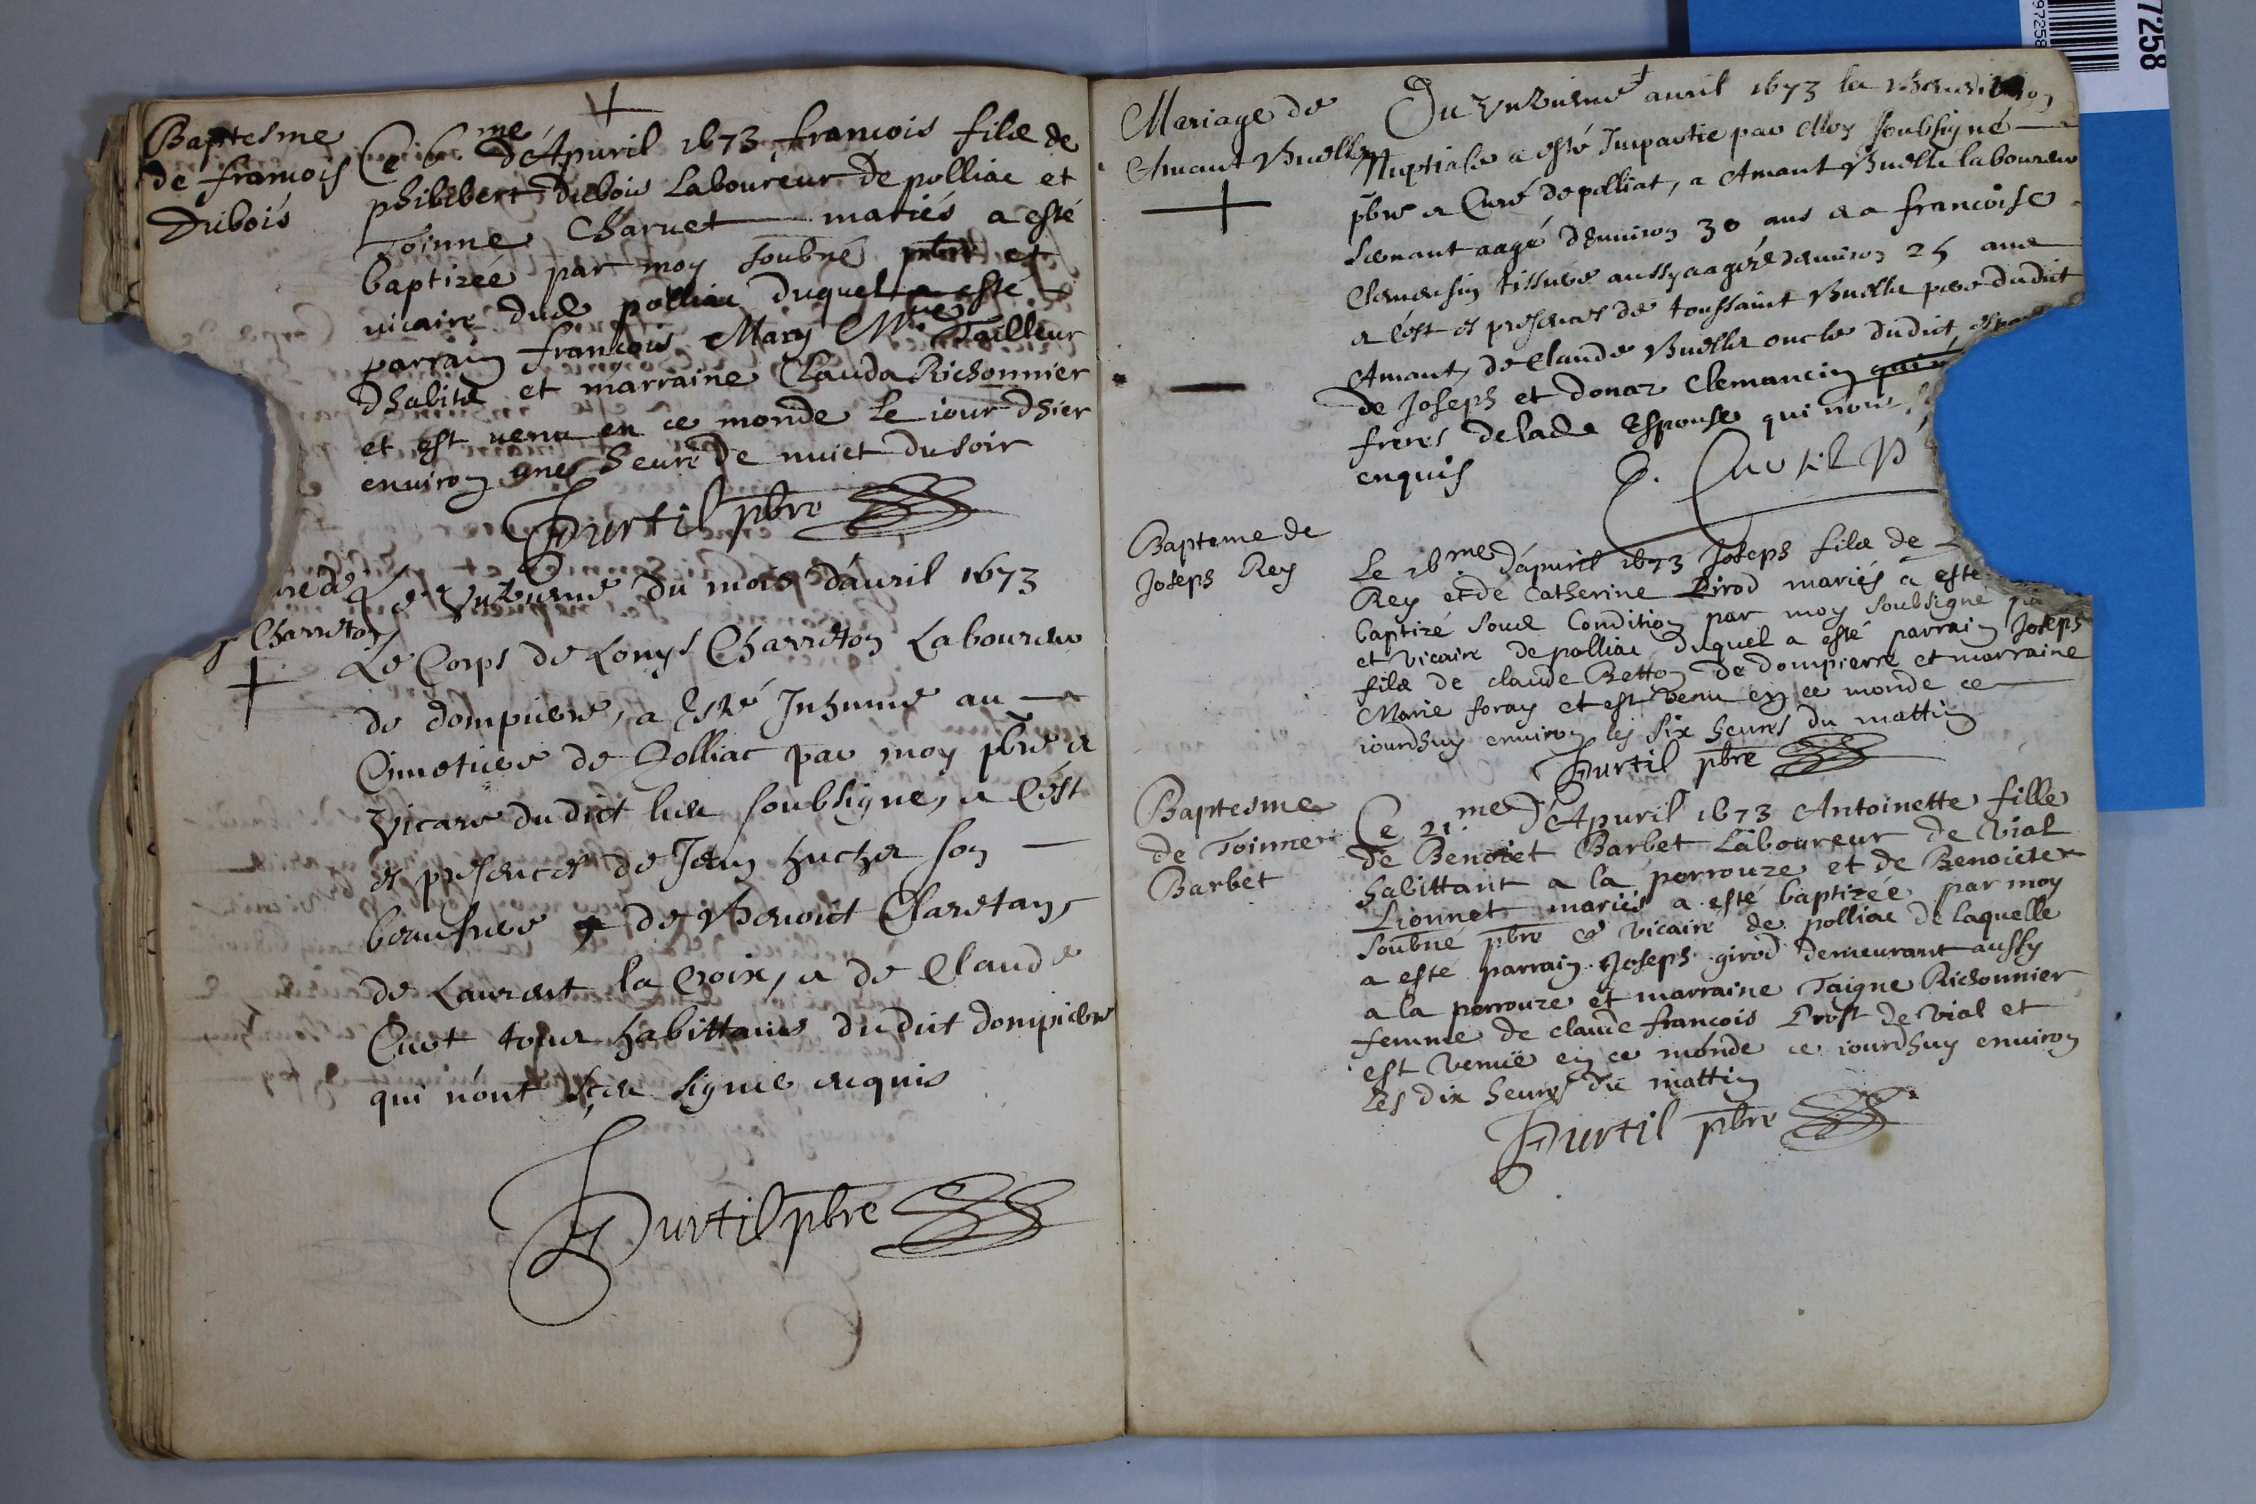 Baptesme
de francois
Dubois
Ce 6me d'Apuril 1673 francois filz de
philibert dubois Laboureur de polliac et
Toinne Charuet mariés a esté
baptizée par moy soubné pbre et
vicaire dud polliac duquel a esté
parrain francois Mary Mre Tailleur
dhabitz et marraine Clauda Richonnier
et est venu en ce monde le iour dhier
environ une heure de nuict du soir
Hurtil pbre
Charreton
Le unzieme du mois d'auril 1673
Le Corps de Louys Charreton Laboureur
de dompierre, a esté Inhumé au
Cimetiere de Polliac par moy pbre et
Vicaire du dict lieu soubsigné, et c'est
es presences de Jean huchet son
beaufrere de Benoict Claretan,
de Laurent la Croix, et de Claude
Cuet tous habittans du dict dompierre
qui n'ont sçeu signer enquis
Hurtil pbre
Mariage de
Amant Buelle
Du unzieme auril 1673 la Benediction
Nuptiale a esté Impartie par Moy soubsigné
pbre et Curé de polliat, a Amant Buelle laboureur
aagé d'enuiron 30 ans et a francoise
Clemensin aussy aagée denuiron 25 ans
et c'est es presences de toussaint Buelle pere dudict
Amant, de Claude Buelle oncle du dict
de Joseph et donaz Clemancin
freres delade Espouse qui n'ont
enquis
Bapteme de
Joseph Rey
Le 16me d'apuril 1673 Joseph filz de
Rey et de Catherine Pirod mariés a esté
baptizé soubz Condition par moy soubsigné
et vicaire de polliac duquel a esté parrain Joseph
filz de claude Retton de dompierre et marraine
Marie foray et est venu en ce monde ce
iourdhuy environ les six heures du mattin
Hurtil pbre
Baptesme
de Toinne
Barbet
Ce 21me d'Apuril 1673 Antoinette fille
de Benoiet Barbet Laboureur de Vial
habittant a la perrouze et de Benoiete
Lionnet mariés a esté baptizée par moy
soubné pbre et vicaire de polliac de laquelle
a esté parrain Joseph girod demeurant aussy
a la perrouze et marraine Taigne Richonnier
femme de claude francois Prost de Vial et
est venuë en ce monde ce iourdhuy environ
les dix heures du mattin
Hurtil pbre
7258